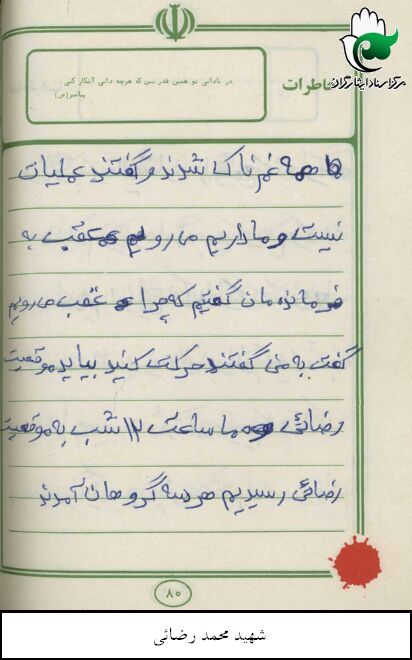 مرکز اسناد ایثارگران
خاطرات
در نادانی تو همین قدر بس که هرچه دانی آشکار کنی
پیامبر(ص)
ما همه غم ناک شدند و گفتند عملیات
نیست و ما داریم می رویم عقب به
فرمانده مان گفتیم که چرا عقب می رویم
گفت به من گفتند حرکت کنید بیاید موقعیت
رضائی و ما ساعت ۱۲ شب به موقعیت
رضائی رسیدیم هر سه گروهان آمدند
۸۰
شهید محمد رضائی